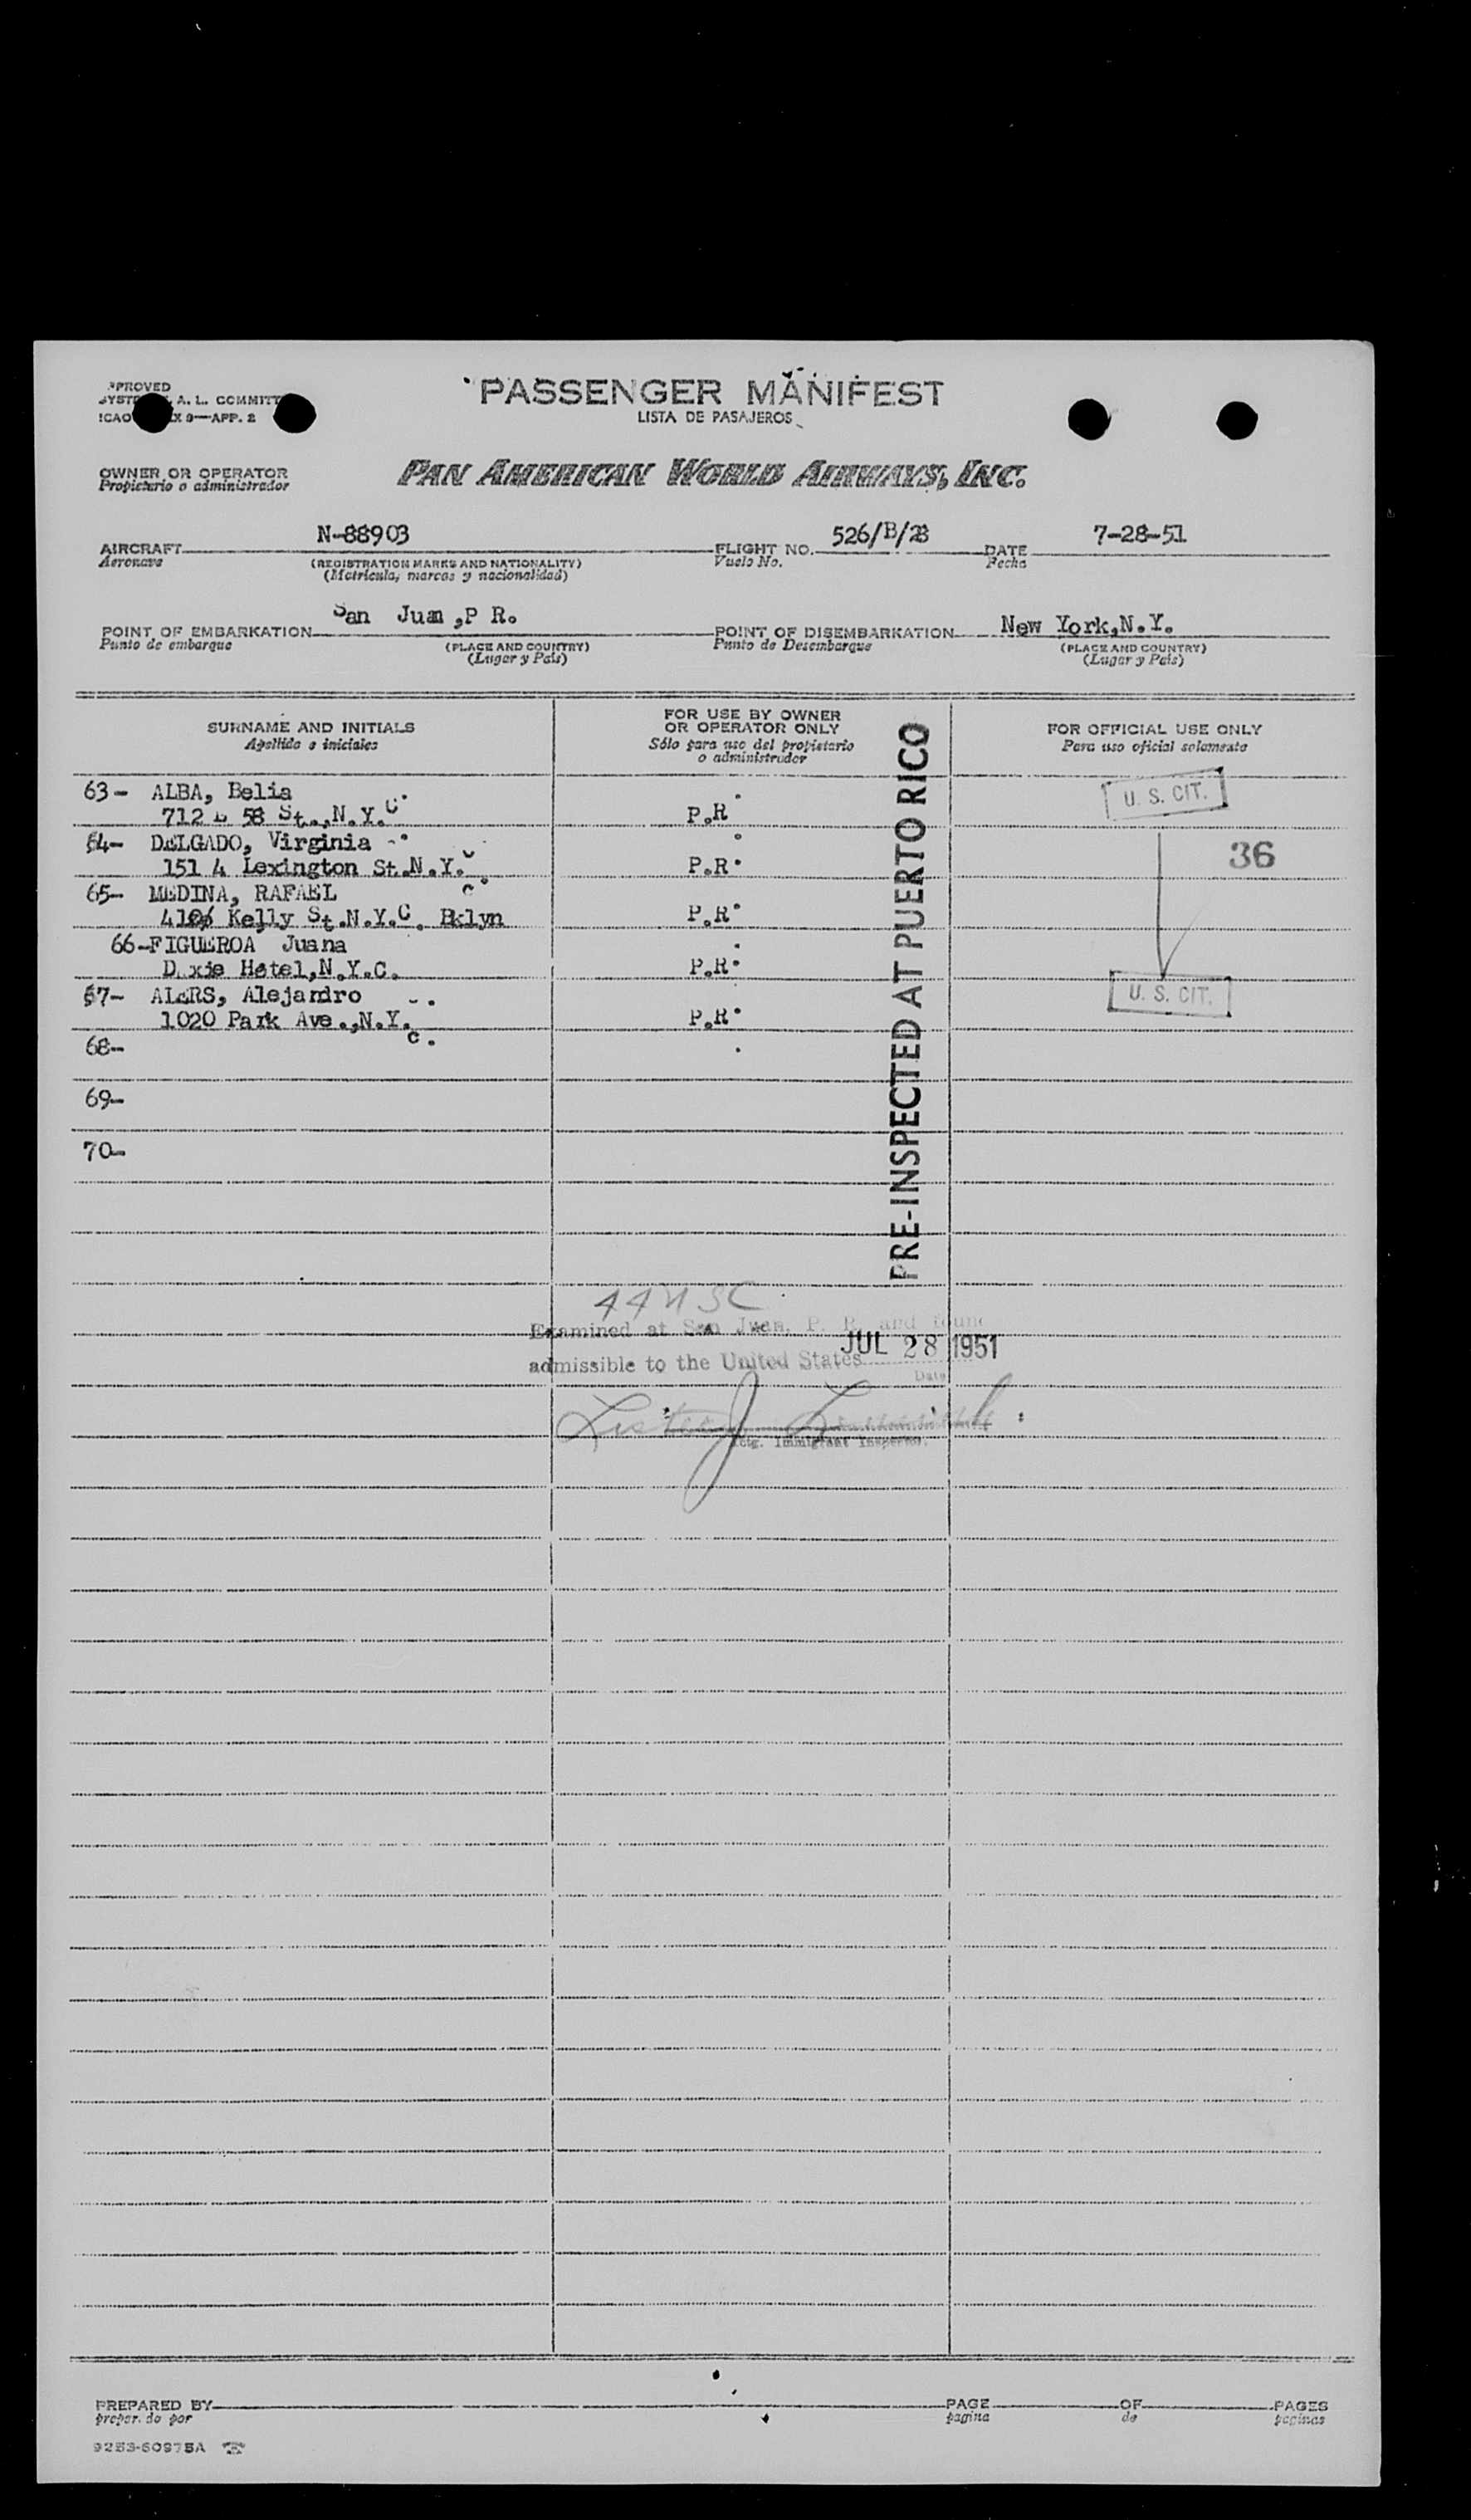 PASSENGER MANIFEST
LISTA DE PASAJEROS
A. L. COMMITT
ICAO X 9—APP. 2
OWNER OR OPERATOR
Propietario o administrador
PAN AMERICAN WORLD AIRWAYS, INC.
AIRCRAFT N-88903 FLIGHT NO. 526/B/28 DATE 7-28-51
Aeronave Vuelo No. Fecha
(REGISTRATION MARKS AND NATIONALITY)
(Matricula, marcas y nacionalidad)
POINT OF EMBARKATION San Juan ,P R. POINT OF DISEMBARKATION New York,N.Y.
Punto de embarque (PLACE AND COUNTRY) Punto de Desembarque (PLACE AND COUNTRY)
(Lugar y Pais) (Lugar y Pais)
SURNAME AND INITIALS
Apellido e iniciales
FOR USE BY OWNER
OR OPERATOR ONLY
Sólo para uso del propietario
o administrador
FOR OFFICIAL USE ONLY
Para uso oficial solamente
63- ALBA, Belia
712 E 58 St.,N.Y.C. P.R. U. S. CIT.
64- DELGADO, Virginia 36
151 4 Lexington St.N.Y. P.R.
65- MEDINA, RAFAEL
Kelly St.N.Y.C. Bklyn P.R.
66-FIGUEROA Juana
Dixie Hotel,N.Y.C. P.R.
67- ALERS, Alejandro
1020 Park Ave.,N.Y.C. P.R. U. S. CIT.
68-
69-
70-
PRE-INSPECTED AT PUERTO RICO
Examined at San Juan, P. R. and found
admissible to the United States JUL 28 1951
Date
Immigrant Inspector.
PREPARED BY PAGE OF PAGES
prepar. do por pagina de paginas
9253-60975A